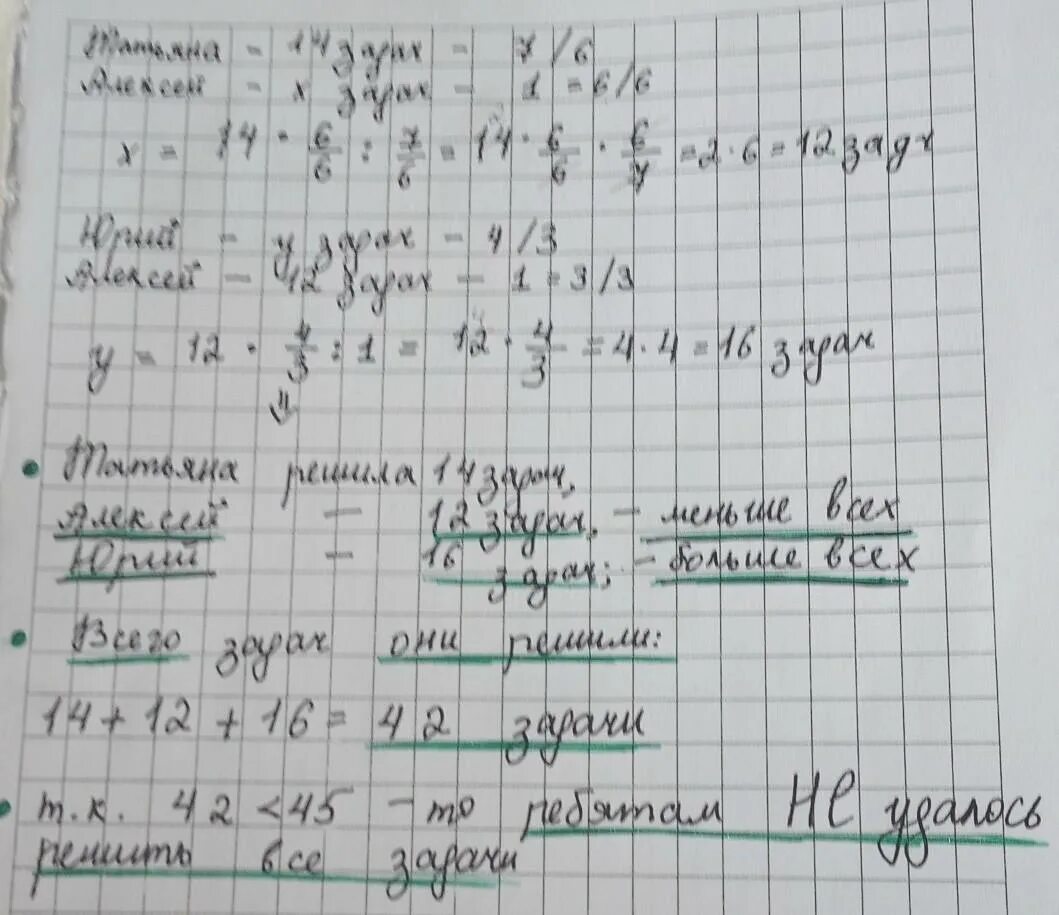 Татьяна - 14 задач - 7/6
Алексей - x задач - 1 = 6/6
x = 14 · 6/6 : 7/6 = 14 · 6/6 · 6/7 = 2 · 6 = 12 задач
Юрий - y задач - 4/3
Алексей - 12 задач - 1 = 3/3
y = 12 · 4/3 : 1 = 12 · 4/3 = 4 · 4 = 16 задач
⇓
• Татьяна решила 14 задач,
Алексей - 12 задач, - меньше всех
Юрий - 16 задач; - больше всех
• Всего задач они решили:
14 + 12 + 16 = 42 задачи
• т.к. 42 < 45 - то ребятам НЕ удалось
решить все задачи